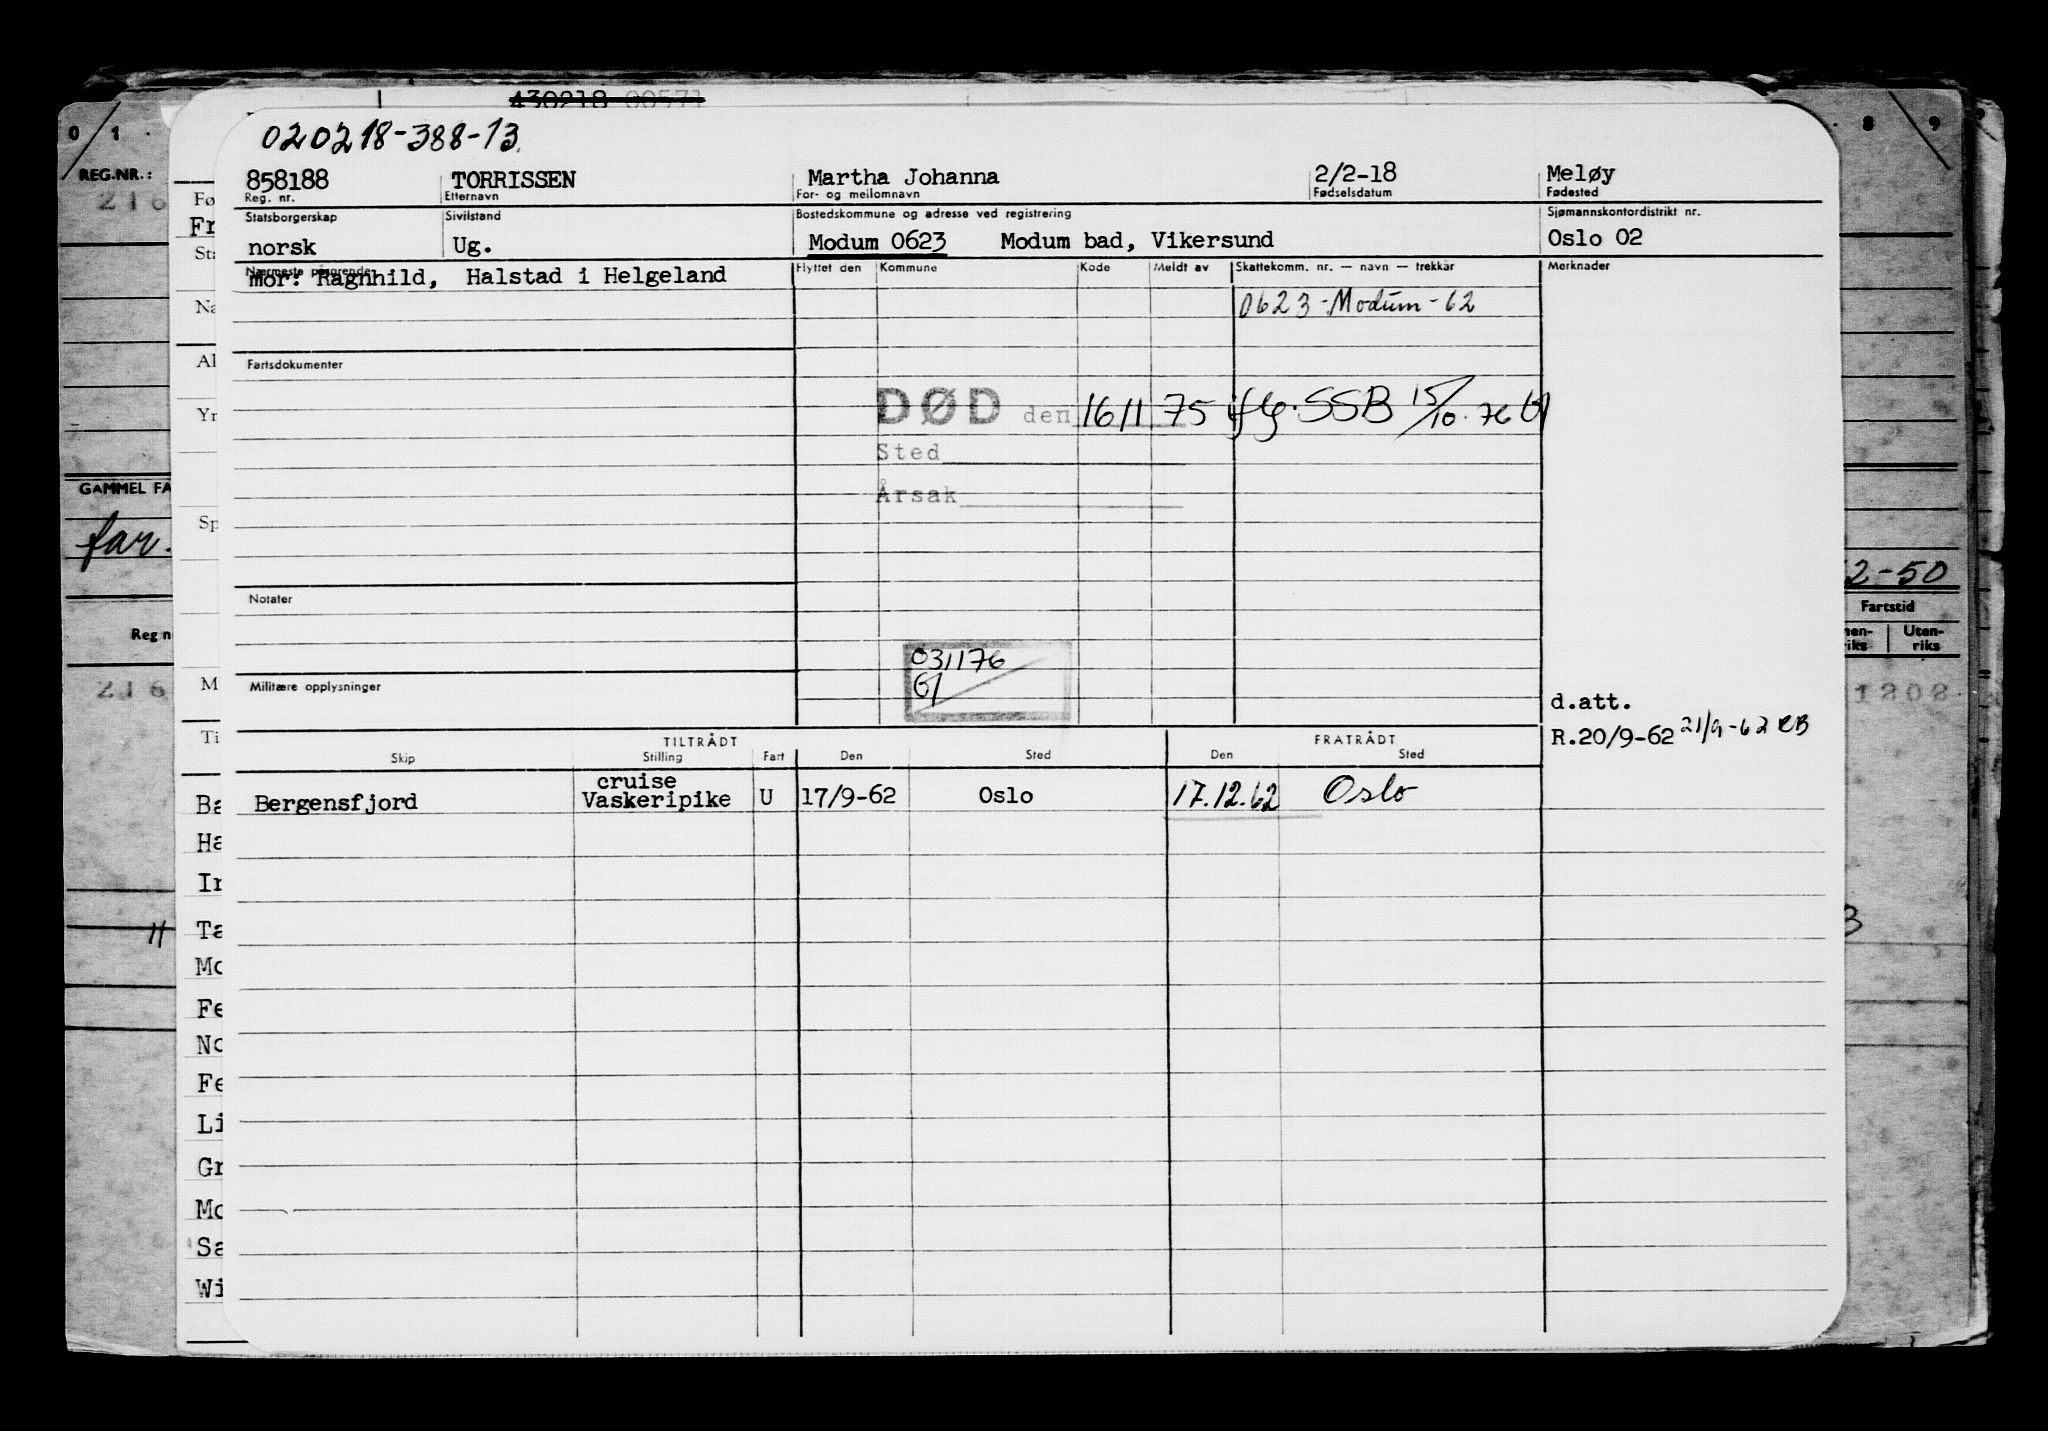 430218 00571
020218-388-13
858188 TORRISSEN Martha Johanna 2/2-18 Meløy
Reg. nr. Etternavn For- og mellomnavn Fødselsdatum Fødested
Statsborgerskap Sivilstand Bostedskommune og adresse ved registrering Sjømannskontordistrikt nr.
norsk Ug. Modum 0623 Modum bad, Vikersund Oslo 02
Nærmeste pårørende Flyttet den Kommune Kode Meldt av Skattekomm. nr. — navn — trekkår Merknader
mor: Ragnhild, Halstad i Helgeland
0623-Modum-62
Fartsdokumenter
DØD den 16 11 75 iflg. SSB 15/10.76
Sted
Årsak
Notater
031176
Militære opplysninger
d.att.
R.20/9-62 21/9-62 RB
TILTRÅDT FRATRÅDT
Skip Stilling Fart Den Sted Den Sted
cruise
Bergensfjord Vaskeripike U 17/9-62 Oslo 17.12.62 Oslo
0 / 1
REG.NR.:
216
GAMMEL FA
far.
Reg n
216
11
Fø
Fr
Sta
Na
Al
Yr
Sp
M
Ti
Ba
Ha
Ir
Ta
Mo
Fe
No
Fe
Li
Gr
Mo
Sa
Wi
8 9
2-50
Fartstid
nen-
riks
Uten-
riks
1202
3